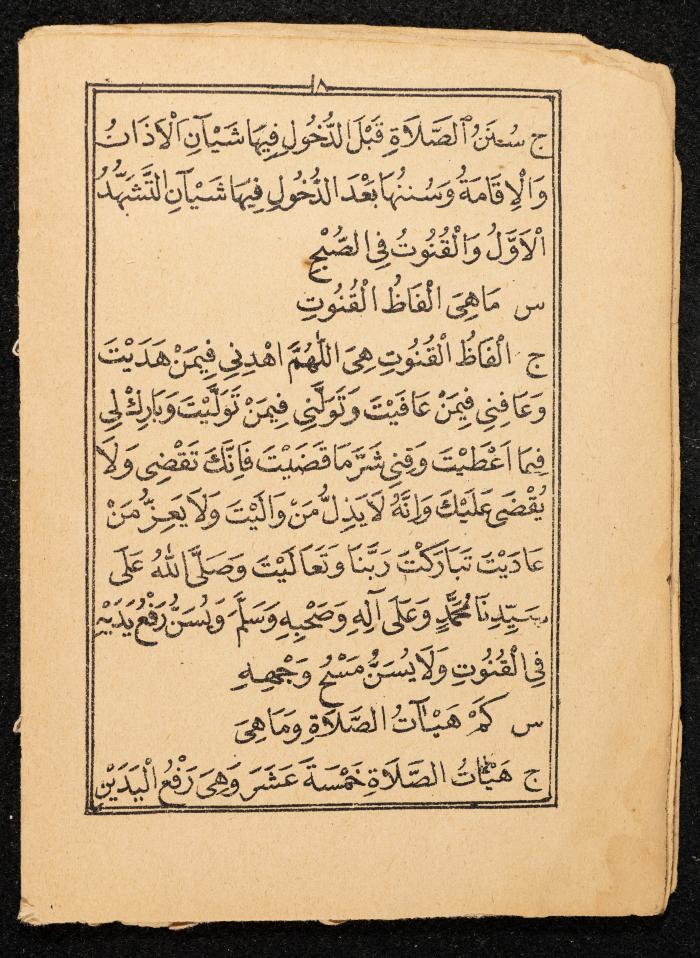 ١٨
ج سُنَنُ الصَّلَاةِ قَبْلَ الدُّخُولِ فِيهَا شَيْآنِ اَلْاَذَانُ
وَالْاِقَامَةُ وَسُنَنُهَا بَعْدَ الدُّخُولِ فِيهَا شَيْآنِ التَّشَهُّدُ
الْاَوَّلُ وَالْقُنُوتُ فِى الصُّبْحِ
س مَا هِىَ الْفَاظُ الْقُنُوتِ
ج الْفَاظُ الْقُنُوتِ هِىَ اللّٰهُمَّ اهْدِنِى فِيمَنْ هَدَيْتَ
وَعَافِنِى فِيمَنْ عَافَيْتَ وَتَوَلَّنِى فِيمَنْ تَوَلَّيْتَ وَبَارِكْ لِى
فِيمَا اَعْطَيْتَ وَقِنِى شَرَّ مَا قَضَيْتَ فَاِنَّكَ تَقْضِى وَلَا
يُقْضَى عَلَيْكَ وَاِنَّهُ لَا يَذِلُّ مَنْ وَالَيْتَ وَلَا يَعِزُّ مَنْ
عَادَيْتَ تَبَارَكْتَ رَبَّنَا وَتَعَالَيْتَ وَصَلَّى اللّٰهُ عَلَى
سَيِّدِنَا مُحَمَّدٍ وَعَلَى آلِهِ وَصَحْبِهِ وَسَلَّمَ وَيُسَنُّ رَفْعُ يَدَيْهِ
فِى الْقُنُوتِ وَلَا يُسَنُّ مَسْحُ وَجْهِهِ
س كَمْ هَيْآتُ الصَّلَاةِ وَمَا هِىَ
ج هَيْآتُ الصَّلَاةِ خَمْسَةَ عَشَرَ وَهِىَ رَفْعُ الْيَدَيْنِ